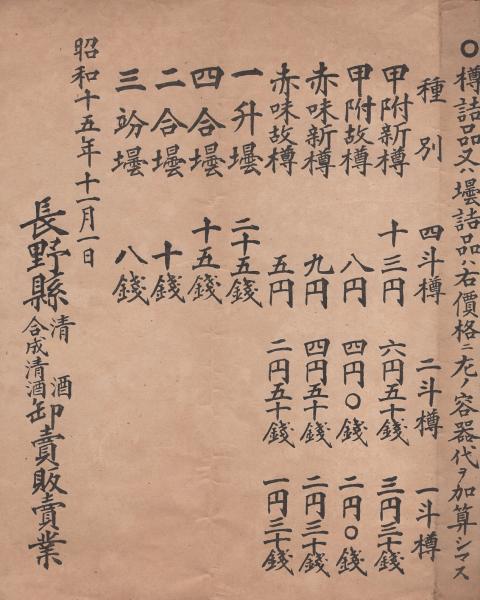 ○樽詰品又ハ壜詰品ハ右價格ニ左ノ容器代ヲ加算シマス
種別 四斗樽 二斗樽 一斗樽
甲附新樽 十三円 六円五十錢 三円三十錢
甲附故樽 八円 四円〇錢 二円〇錢
赤味新樽 九円 四円五十錢 二円三十錢
赤味故樽 五円 二円五十錢 一円三十錢
一升壜 二十五錢
四合壜 十五錢
二合壜 十錢
三竕壜 八錢
昭和十五年十一月一日
長野縣清酒合成清酒卸賣販賣業